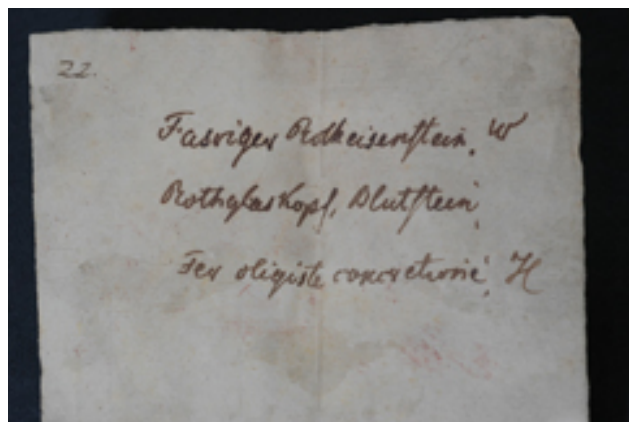 22.
Fasriger Rotheisenstein. W
Rothglaskopf, Blutstein
Fer oligiste concretionné, H